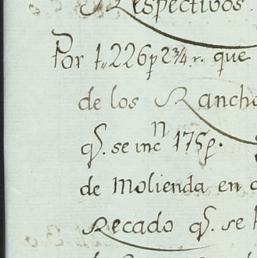 Respectivos.
Por 1,,226p 2¾ r. que
de los Rancho
q̃. se inc n 175p.
de Molienda en
Recado q̃. se